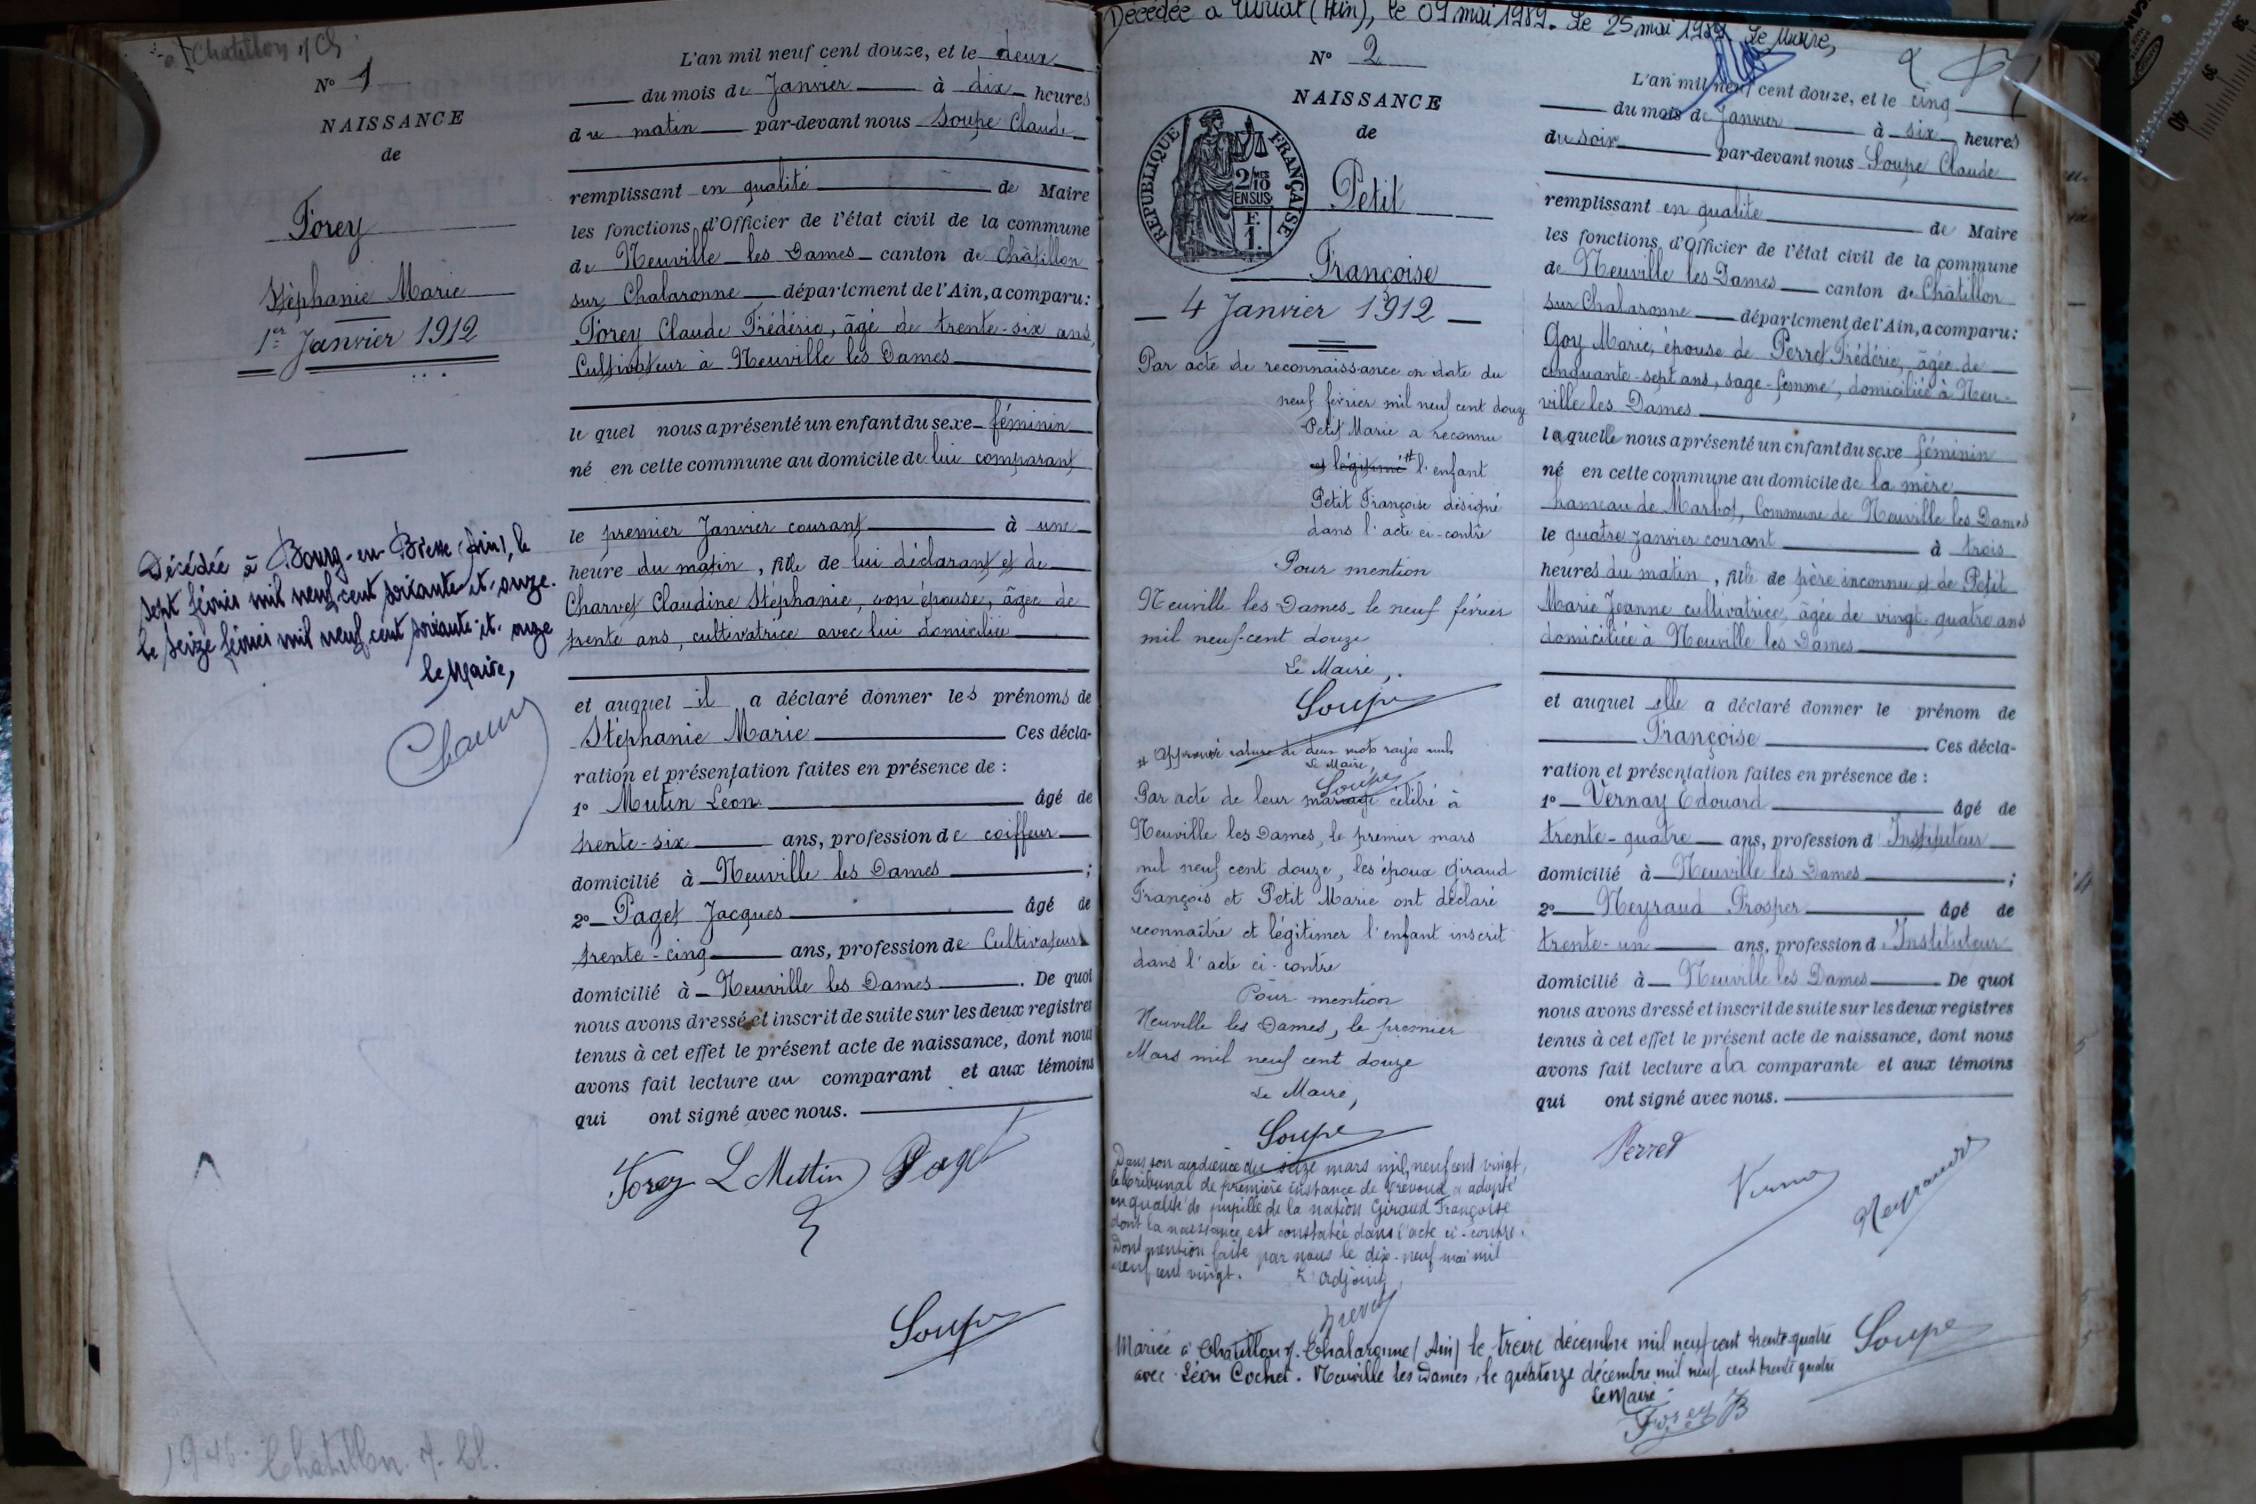 Chatillon s/ Ch
N° 1
NAISSANCE
de
Forey
Stéphanie Marie
1er Janvier 1912
Décédée à Bourg-en-Bresse (Ain), le
sept février mil neuf cent soixante-et-onze.
le seize février mil neuf cent soixante-et-onze
le Maire,
L'an mil neuf cent douze, et le deux
du mois de Janvier à dix heures
du matin par-devant nous Soupe Claude
remplissant en qualité de Maire
les fonctions d'Officier de l'état civil de la commune
de Neuville les Dames canton de Châtillon
sur Chalaronne département de l'Ain, a comparu:
Forey Claude Frédéric, âgé de trente-six ans,
Cultivateur à Neuville les Dames
le quel nous a présenté un enfant du sexe féminin
né en cette commune au domicile de lui comparant
le premier Janvier courant à une
heure du matin, fille de lui déclarant et de
Charvet Claudine Stéphanie, son épouse, âgée de
trente ans, cultivatrice avec lui domiciliée
et auquel il a déclaré donner les prénoms de
Stéphanie Marie Ces décla-
ration et présentation faites en présence de :
1° Mutin Léon âgé de
trente-six ans, profession de coiffeur
domicilié à Neuville les Dames ;
2° Paget Jacques âgé de
trente-cinq ans, profession de Cultivateur
domicilié à Neuville les Dames . De quoi
nous avons dressé et inscrit de suite sur les deux registres
tenus à cet effet le présent acte de naissance, dont nous
avons fait lecture au comparant et aux témoins
qui ont signé avec nous.
Forey L Mettin Paget
Soupe
1946. Chatillon s. Ch.
Décédée à Viriat (Ain), le 09 mai 1989. Le 25 mai 1989 Le Maire,
N° 2
NAISSANCE
de
REPUBLIQUE FRANÇAISE
2/10
EN SUS
F.
1.
Petit
Françoise
4 Janvier 1912
Par acte de reconnaissance en date du
neuf février mil neuf cent douze
Petit Marie a reconnu
et légitimé # l'enfant
Petit Françoise désigné
dans l'acte ci-contre
Pour mention
Neuville les Dames le neuf février
mil neuf-cent douze
Le Maire,
Soupe
# Approuvé rature de deux mots rayés nuls
Le Maire,
Soupe
Par acte de leur mariage célébré à
Neuville les Dames, le premier mars
mil neuf cent douze, les époux Giraud
François et Petit Marie ont déclaré
reconnaître et légitimer l'enfant inscrit
dans l'acte ci-contre
Pour mention
Neuville les Dames, le premier
Mars mil neuf cent douze
Le Maire,
Soupe
Dans son audience du seize mars mil neuf cent vingt,
le tribunal de première instance de Trévoux a adopté
en qualité de pupille de la nation Giraud Françoise
dont la naissance est constatée dans l'acte ci-contre.
Dont mention faite par nous le dix-neuf mai mil
neuf cent vingt. L'adjoint,
Mariée à Chatillon s. Chalaronne (Ain) le treize décembre mil neuf cent trente-quatre
avec Léon Cochet. Neuville les Dames, le quatorze décembre mil neuf cent trente quatre
Le Maire
Forey
L'an mil neuf cent douze, et le cinq
du mois de Janvier à six heures
du soir par-devant nous Soupe Claude
remplissant en qualité de Maire
les fonctions d'Officier de l'état civil de la commune
de Neuville les Dames canton de Châtillon
sur Chalaronne département de l'Ain, a comparu:
Goy Marie, épouse de Perret Frédéric, âgée de
cinquante-sept ans, sage-femme, domiciliée à Neu-
ville les Dames
laquelle nous a présenté un enfant du sexe féminin
né en cette commune au domicile de la mère
hameau de Marbot, Commune de Neuville les Dames
le quatre Janvier courant à trois
heures du matin, fille de père inconnu et de Petit
Marie Jeanne cultivatrice, âgée de vingt-quatre ans
domiciliée à Neuville les Dames
et auquel elle a déclaré donner le prénom de
Françoise Ces décla-
ration et présentation faites en présence de :
1° Vernay Edouard âgé de
trente-quatre ans, profession d'Instituteur
domicilié à Neuville les Dames ;
2° Neyraud Prosper âgé de
trente-un ans, profession d'Instituteur
domicilié à Neuville les Dames De quoi
nous avons dressé et inscrit de suite sur les deux registres
tenus à cet effet le présent acte de naissance, dont nous
avons fait lecture à la comparante et aux témoins
qui ont signé avec nous.
Perret
Neyraud
Soupe